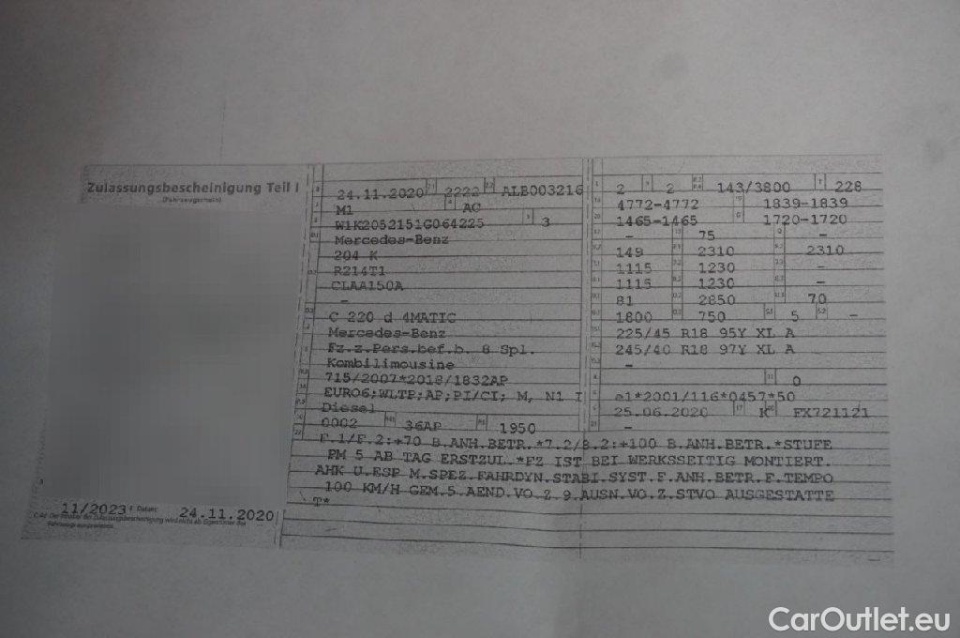 Zulassungsbescheinigung Teil I
(Fahrzeugschein)
11/2023 Datum: 24.11.2020
24.11.2020 2222 ALB003216
M1 AC
W1K2052151G064225 3
Mercedes-Benz
204 K
R2I4T1
CLAA150A
–
C 220 d 4MATIC
Mercedes-Benz
Fz.z.Pers.bef.b. 8 Spl.
Kombilimousine
715/2007*2018/1832AP
EURO6;WLTP;AP;PI/CI; M, N1 I
Diesel
0002 36AP 1950
2 2 143/3800 228
4772-4772 1839-1839
1465-1465 1720-1720
– 75 –
149 2310 2310
1115 1230 –
1115 1230 –
81 2850 70
1800 750 5 –
225/45 R18 95Y XL A
245/40 R18 97Y XL A
–
0
e1*2001/116*0457*50
25.06.2020 K FX721121
–
F.1/F.2:+70 B.ANH.BETR.*7.2/8.2:+100 B.ANH.BETR.*STUFE
PM 5 AB TAG ERSTZUL.*FZ IST BEI WERKSSEITIG MONTIERT.
AHK U.ESP M.SPEZ.FAHRDYN.STABI.SYST.F.ANH.BETR.F.TEMPO
100 KM/H GEM.5.AEND.VO.Z.9.AUSN.VO.Z.STVO AUSGESTATTE
T*
CarOutlet.eu